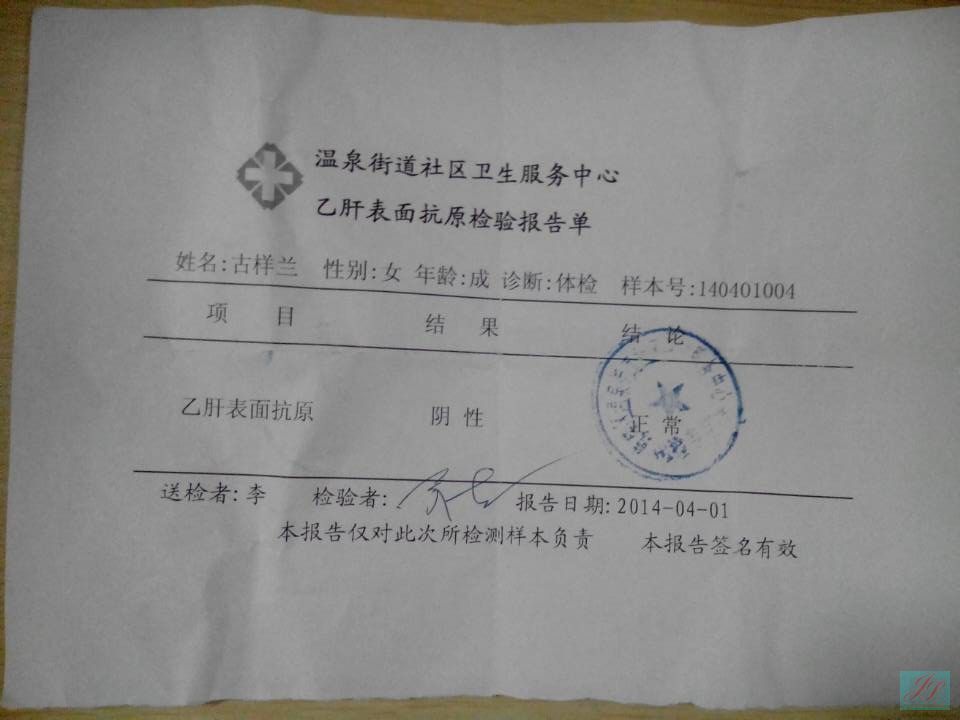 温泉街道社区卫生服务中心
乙肝表面抗原检验报告单
姓名:古样兰 性别:女 年龄:成 诊断:体检 样本号:140401004
项 目 结 果 结 论
乙肝表面抗原 阴 性 正 常
送检者:李 检验者: 报告日期:2014-04-01
本报告仅对此次所检测样本负责 本报告签名有效